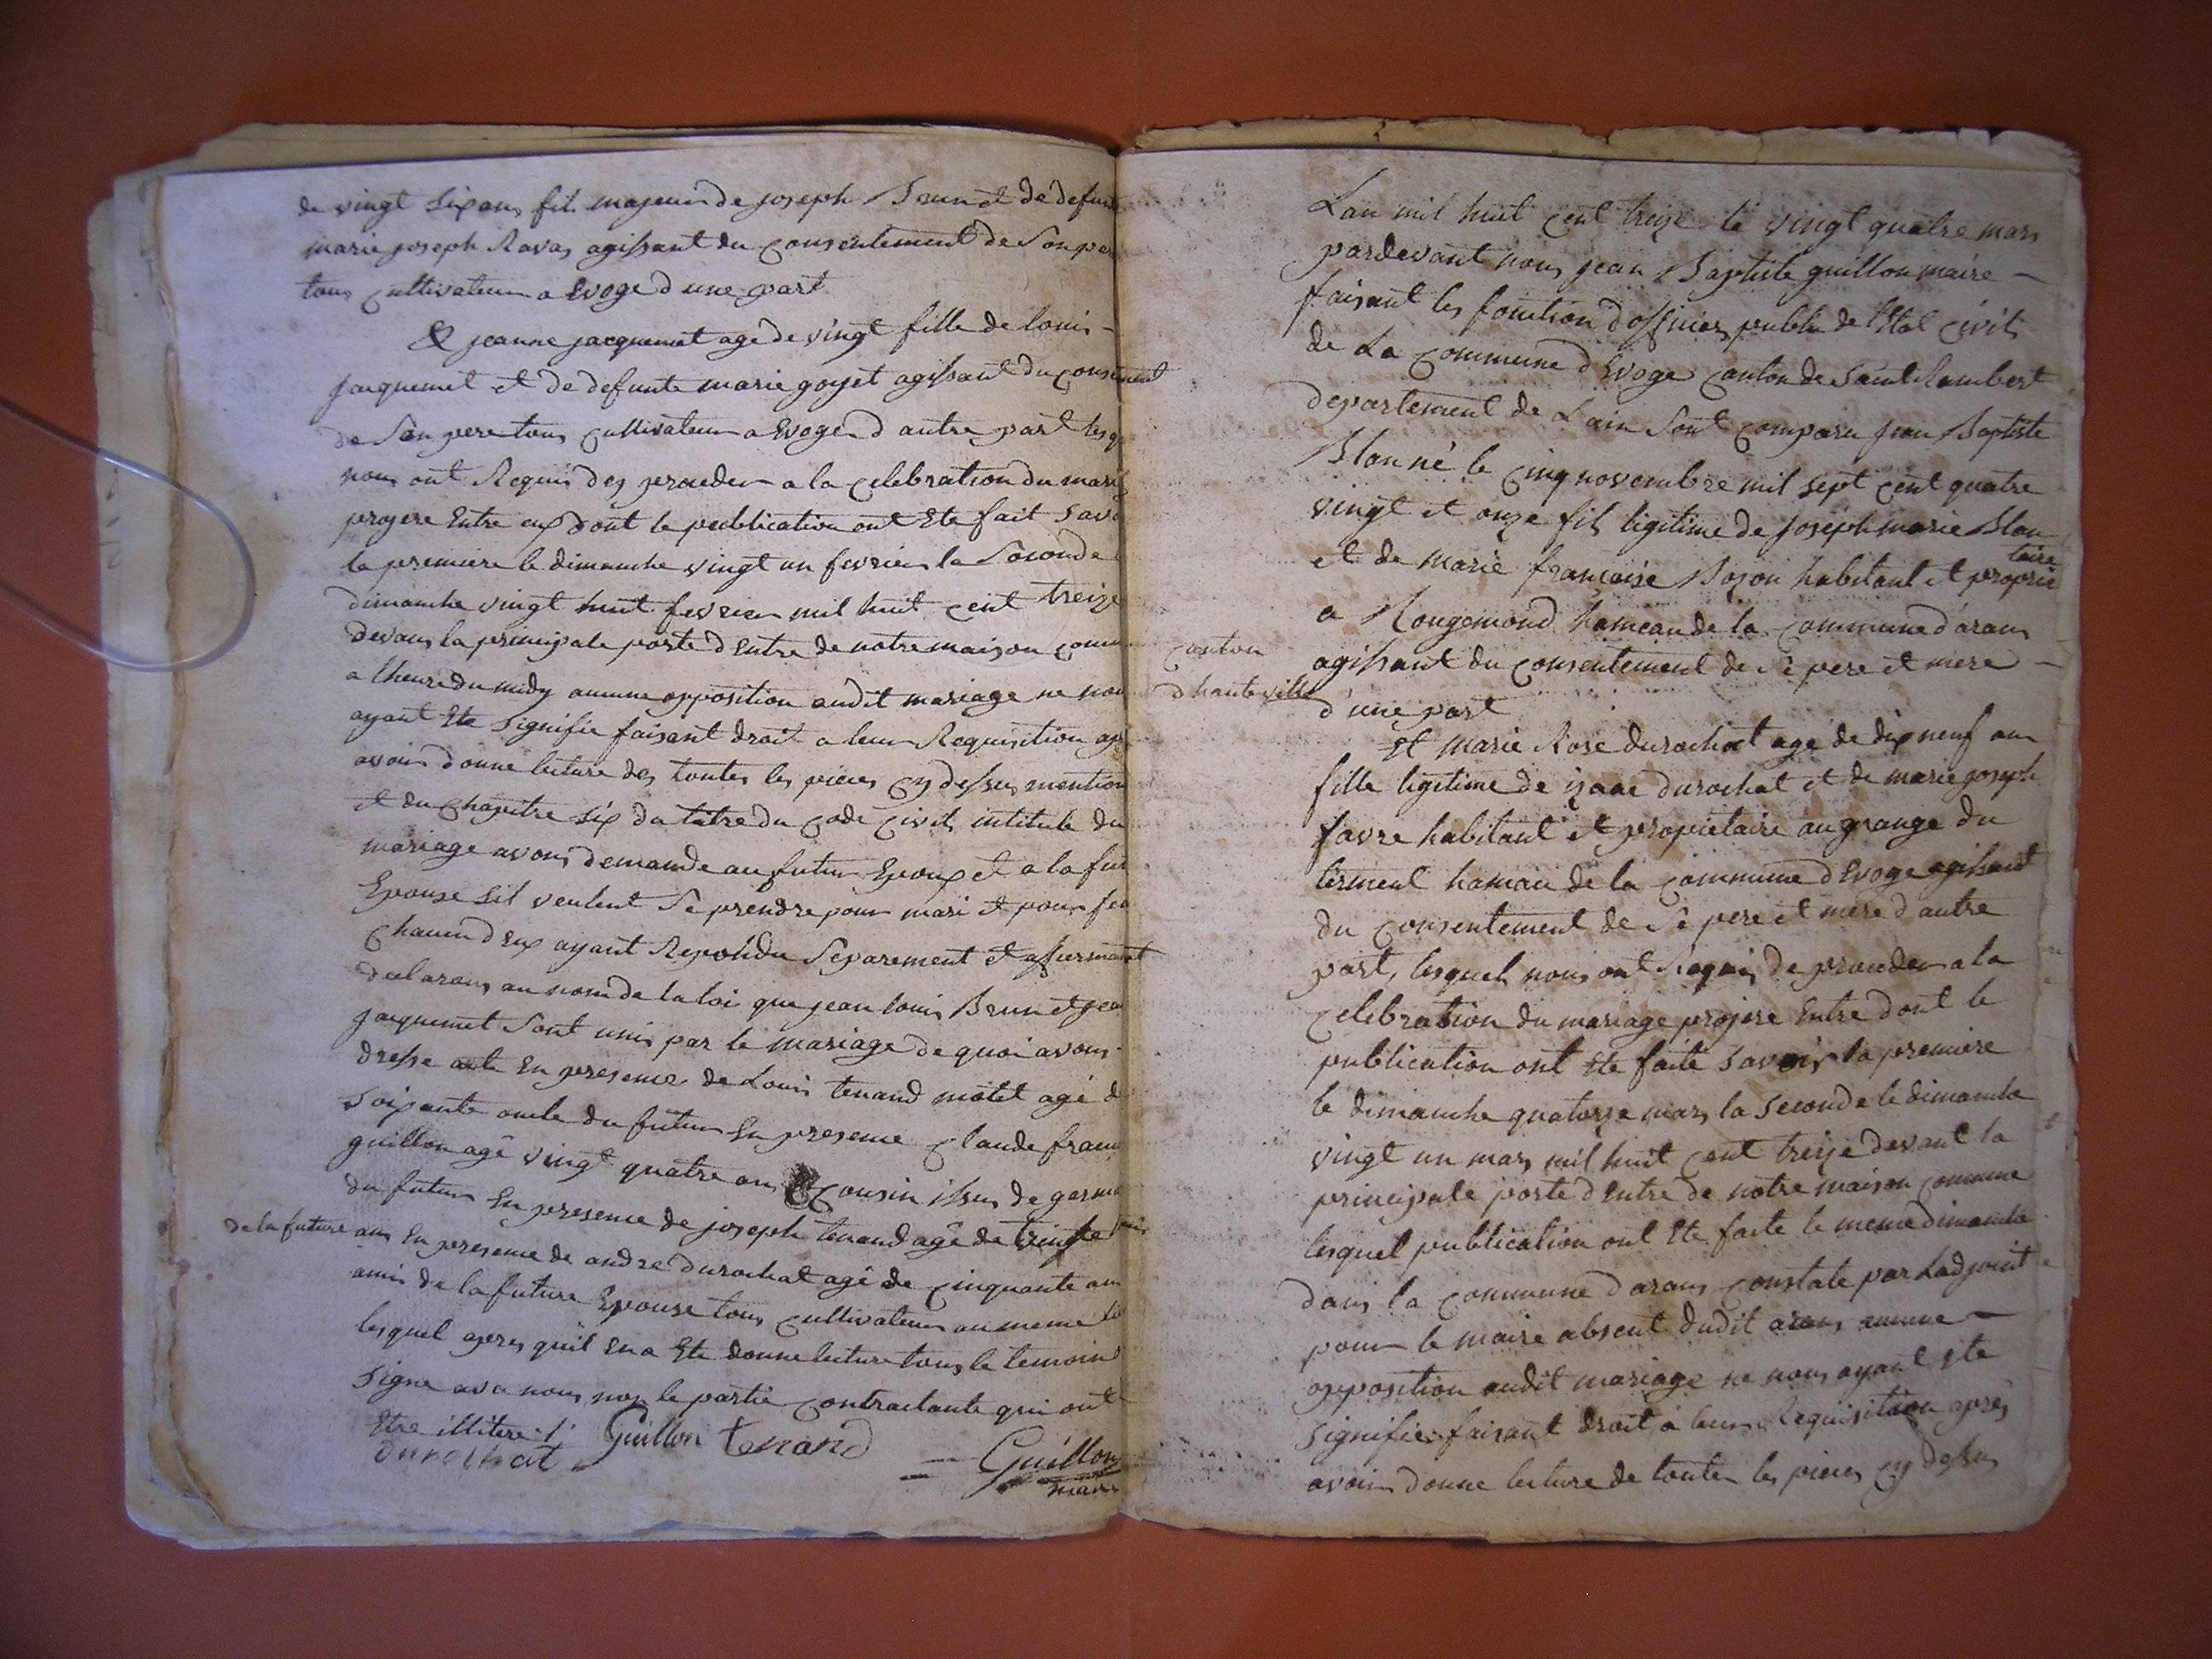 de vingt six ans fil majeur de joseph Brun et de defunte
marie joseph Ravas agissant du consentement de Son per
tous cultivateur a Evoge d une part
& jeanne jacquemet age de vingt fille de louis
jacquemet et de defunte marie goyet agissant du consement
de Son pere tous cultivateur a Evoge d autre part lesq
nous ont Requis des proceder a la celebration du maria
projere Entre eux dont le peublication ont Ete fait Savo
la premiere le dimanche vingt un fevrier la Seconde
dimanche vingt huit fevrier mil huit cent treize
devans la principale porte d Entre de notre maison comm
a lheure du midy aucune opposition audit mariage ne nou
ayant Ete Signifie faisant droit a leur Requisition apr
avoir donne lecture des toutes les pieces cy dessus mention
et du chapitre six du titre du code civil intitule du
mariage avons demande au futur Epoux et a la fut
Epouse sil veulent Se prendre pour mari et pour fem
chacun d eux ayant Repondu Separement et affirmant
declarons au nom de la loi que jean louis Brun et jea
jacquemet Sont unis par le mariage de quoi avons
dresse acte En presence de Louis tenand motet agé d
Soixante oncle du futur En presence claude franc
guillon agé vingt quatre ans cousin issus de germa
du futur En presence de joseph tenand agé de tringte
de la future ans En presence de andre durochat agé de cinquante an
amis de la future Epouse tous cultivateur au meme
lesquel apres quil En a Ete donne lecture tous le temoins
Signe avec nous non le partie contractante qui ont
Etre illitere ./.
durochat Guillon tenand
= Guillon
maire
Lan mil huit cent treize le vingt quatre mars
pardevant nous jean Baptiste guillon maire
faisant les fonction d officier public de lEtat civil
de La commune d Evoge canton de Saint Rambert
departement de Lain Sont comparu jean Baptiste
Blan né le cinq novembre mil sept cent quatre
vingt et onze fils legitime de joseph marie Blan
et de marie françoise Bozon habitant et proprie
taire
a Rougemond hameau de la commune d arans
canton
d hauteville
agissant du consentement de Sé pere et mere
d une part
Et marie Rose durochat agé de dix neuf an
fille legitime de izaac durochat et de marie joseph
favre habitant et propietaire au grange du
terment hamau de la commune d Evoge agissant
du consentement de Sé pere et mere d autre
part, lesquel nous ont Requis de proceder a la
celebration du mariage projere Entre dont le
publication ont Ete faite Savoir la premiere
le dimanche quatorze mars la Seconde le dimanche
vingt un mars mil huit cent treize devant la
principale porte d Entre de notre maison commune
lesquel publication ont Ete faite le meme dimanche
dans la commune d arans constate par Ladjoint
pour le maire absent dudit arans aucune
opposition audit mariage ne nous ayant Ete
Signifie faisant droit a leur Requisition aprés
avoir donne lecture de toutes les pieces cy dessus